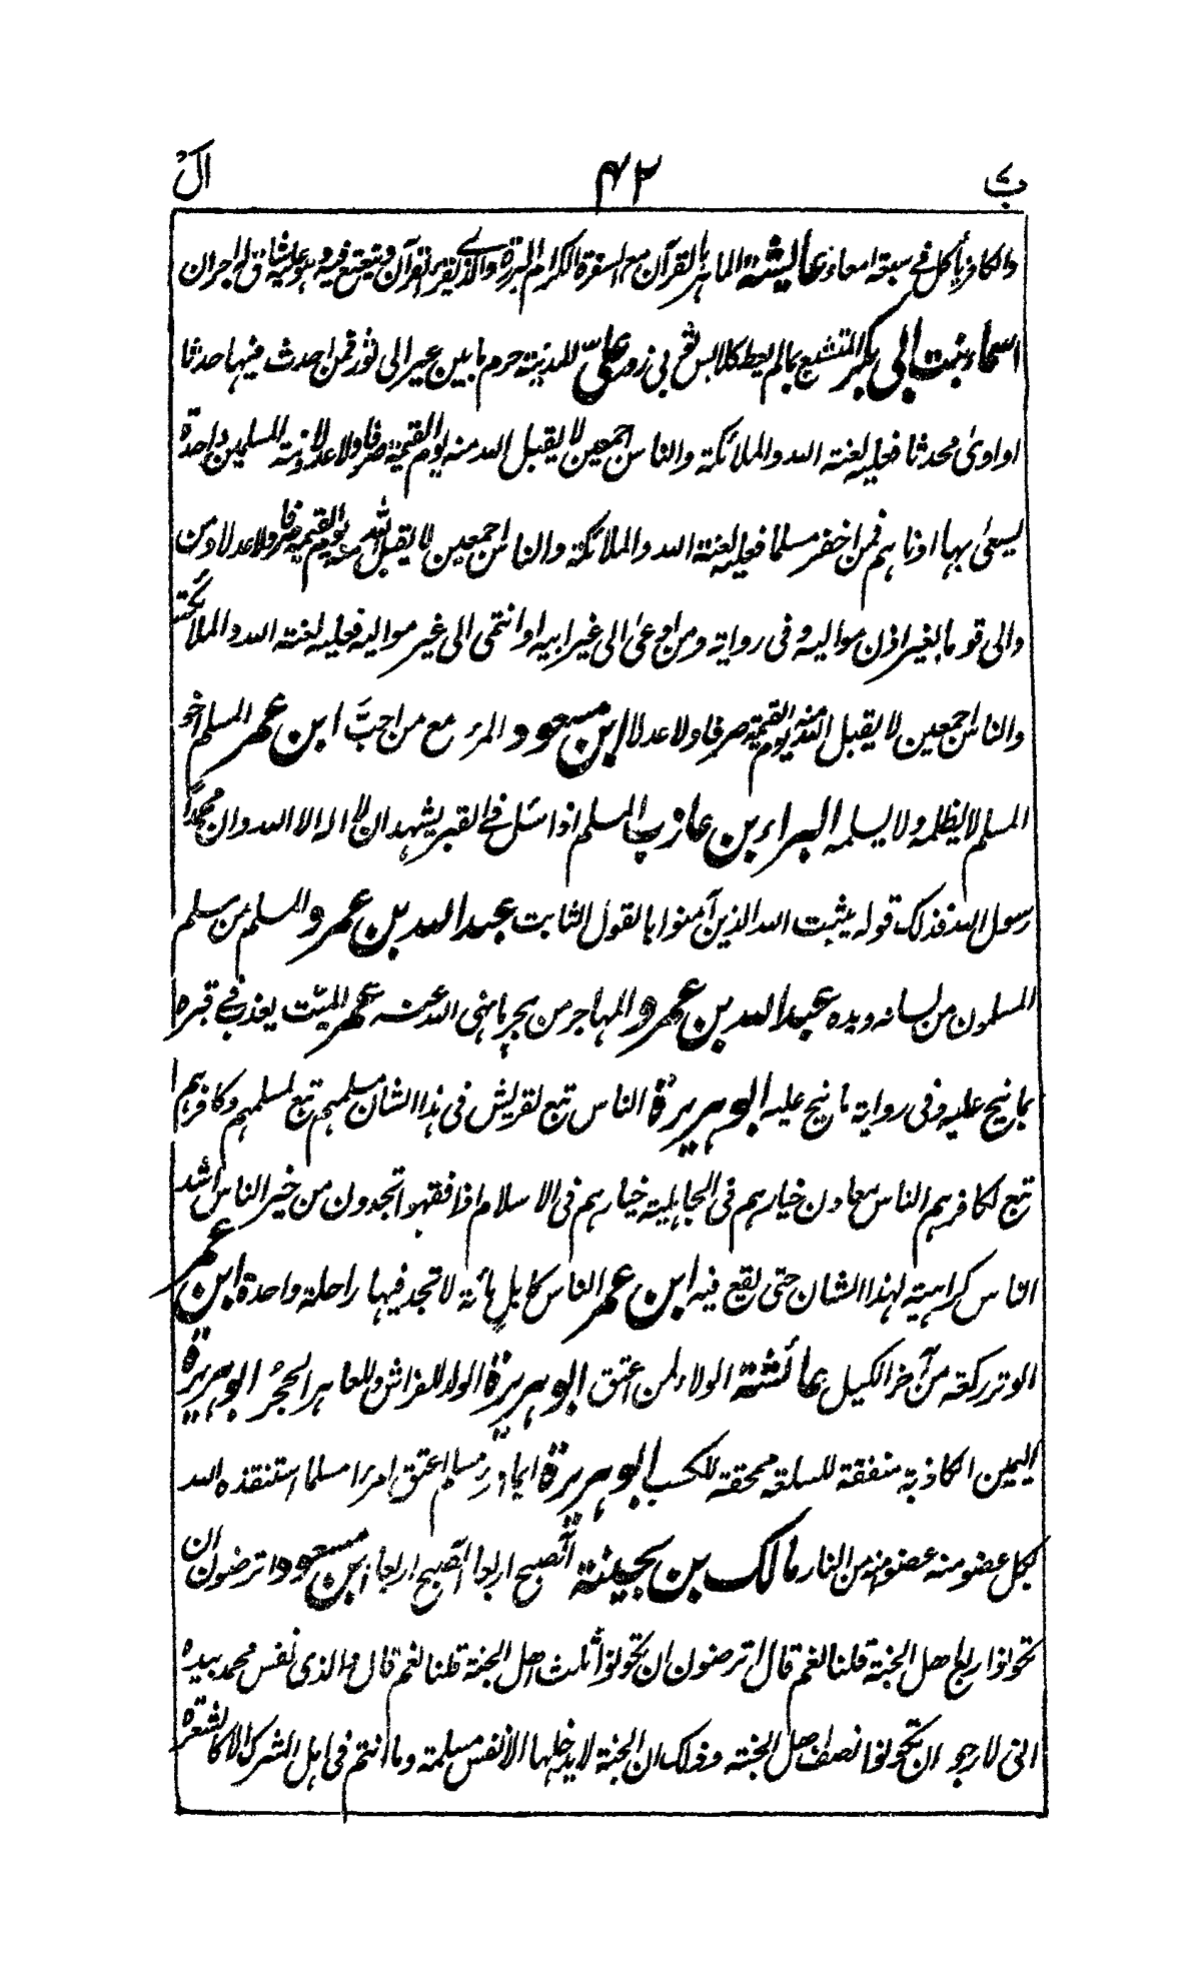 ب ۴۲ ال
والكافر يأكل فى سبعة امعاء عائشة الماهر بالقرآن مع السفرة الكرام البررة والذى يقرأ القرآن ويتعتع فيه وهو عليه شاق له اجران
اسماء بنت ابى بكر المتشبع بما لم يعط كلابس ثوبى زور على المدينة حرم ما بين عير الى ثور فمن احدث فيها حدثا
او اوىٰ محدثا فعليه لعنة الله والملائكة والناس اجمعين لا يقبل الله منه يوم القيمة صرفا ولا عدلا وذمة المسلمين واحدة
يسعىٰ بها ادناهم فمن اخفر مسلما فعليه لعنة الله والملائكة والناس اجمعين لا يقبل الله منه يوم القيمة صرفا ولا عدلا ومن
والى قوما بغير اذن مواليه وفى رواية ومن ادعىٰ الى غير ابيه او انتمى الى غير مواليه فعليه لعنة الله والملائكة
والناس اجمعين لا يقبل الله منه يوم القيمة صرفا ولا عدلا ابن مسعود المرء مع من احبَّ ابن عمر المسلم اخو
المسلم لا يظلمه ولا يسلمه البراء بن عازب المسلم اذا سئل فى القبر يشهد ان لا اله الا الله وان محمدًا
رسول الله فذلك قوله يثبت الله الذين آمنوا بالقول الثابت عبد الله بن عمرو المسلم من سلم
المسلمون من لسانه ويده عبد الله بن عمرو المهاجر من هجر ما نهى الله عنه عمر الميّت يعذب فى قبره
بما نيح عليه وفى رواية ما نيح عليه ابو هريرة الناس تبع لقريش فى هذا الشان مسلمهم تبع لمسلمهم وكافرهم
تبع لكافرهم الناس معادن خيارهم فى الجاهلية خيارهم فى الاسلام اذا فقهوا تجدون من خير الناس اشد
الناس كراهية لهذا الشان حتى يقع فيه ابن عمر الناس كابل مائة لا تجد فيها راحلة واحدة ابن عمر
الوتر ركعة من آخر الليل عائشة الولاء لمن اعتق ابو هريرة الولد للفراش وللعاهر الحجر ابو هريرة
اليمين الكاذبة منفقة للسلعة ممحقة للكسب ابو هريرة ايما امرئ مسلم اعتق امرءا مسلما استنقذه الله
بكل عضو منه عضوا منه من النار مالك بن بحينة آلصبح اربعا آلصبح اربعا ابن مسعود اترضون ان
تكونوا ربع اهل الجنة قلنا نعم قال اترضون ان تكونوا ثلث اهل الجنة قلنا نعم قال والذى نفس محمد بيده
انى لارجو ان تكونوا نصف اهل الجنة وذلك ان الجنة لا يدخلها الا نفس مسلمة وما انتم فى اهل الشرك الا كالشعرة